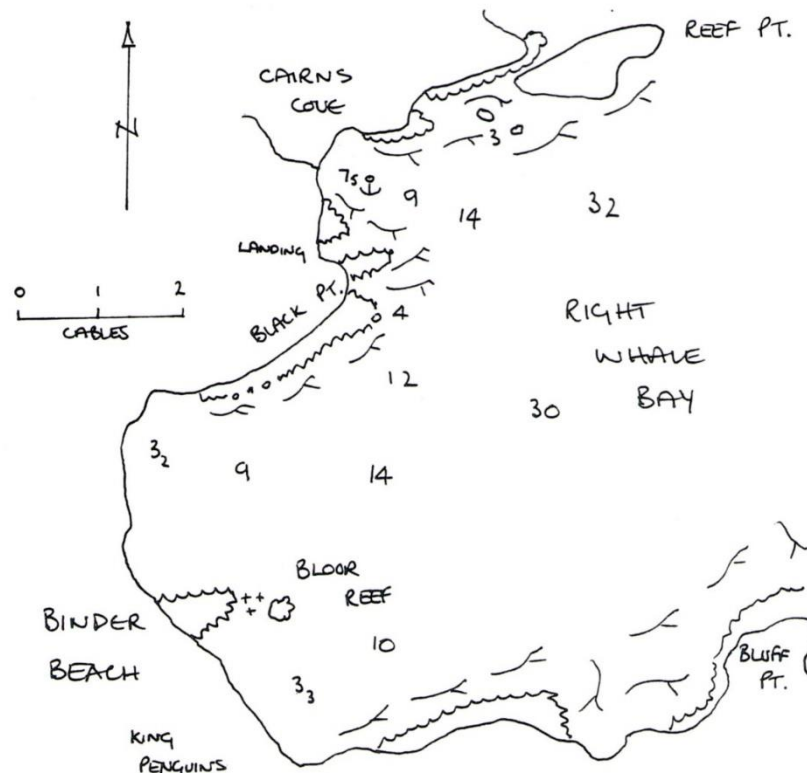 REEF PT.
CAIRNS
COVE
N
3
7₅
9
14
32
LANDING
0 1 2
CABLES
BLACK PT.
4
RIGHT
WHALE
BAY
12
30
3₂
9
14
BLOOR
REEF
BINDER
BEACH
10
BLUFF
PT.
3₃
KING
PENGUINS